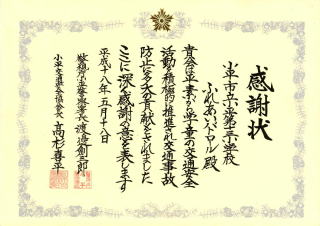 感謝状
小平市立小平第三小学校
ふれあいパトロール殿
貴会は平素から学童の交通安全
活動を積極的に推進され交通事故
防止に多大な貢献をされました
ここに深く感謝の意を表します
平成十八年五月十八日
警視庁小平警察署長 渡邉創三郎
小平交通安全協会長 高杉喜平